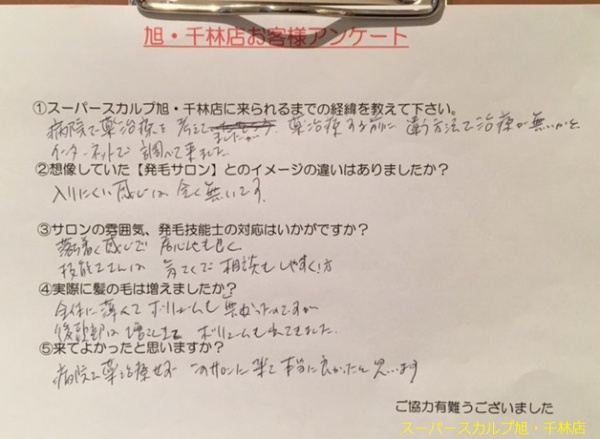 旭・千林店お客様アンケート
①スーパースカルプ旭・千林店に来られるまでの経緯を教えて下さい。
病院で薬治療を考えて ましたが、薬治療する前に違う方法で治療が無いかと
インターネットで調べて来ました
②想像していた【発毛サロン】とのイメージの違いはありましたか?
入りにくい感じは全く無いです。
③サロンの雰囲気、発毛技能士の対応はいかがですか?
落ち着く感じで居心地も良く
技能士さんは 気さくで相談もしやすい方
④実際に髪の毛は増えましたか?
全体に薄くて ボリュームも無かったのですが
後頭部は増えし ボリュームも出てきました。
⑤来てよかったと思いますか?
病院で薬治療せず このサロンに来て本当に良かったと思います
ご協力有難うございました
スーパースカルプ旭・千林店